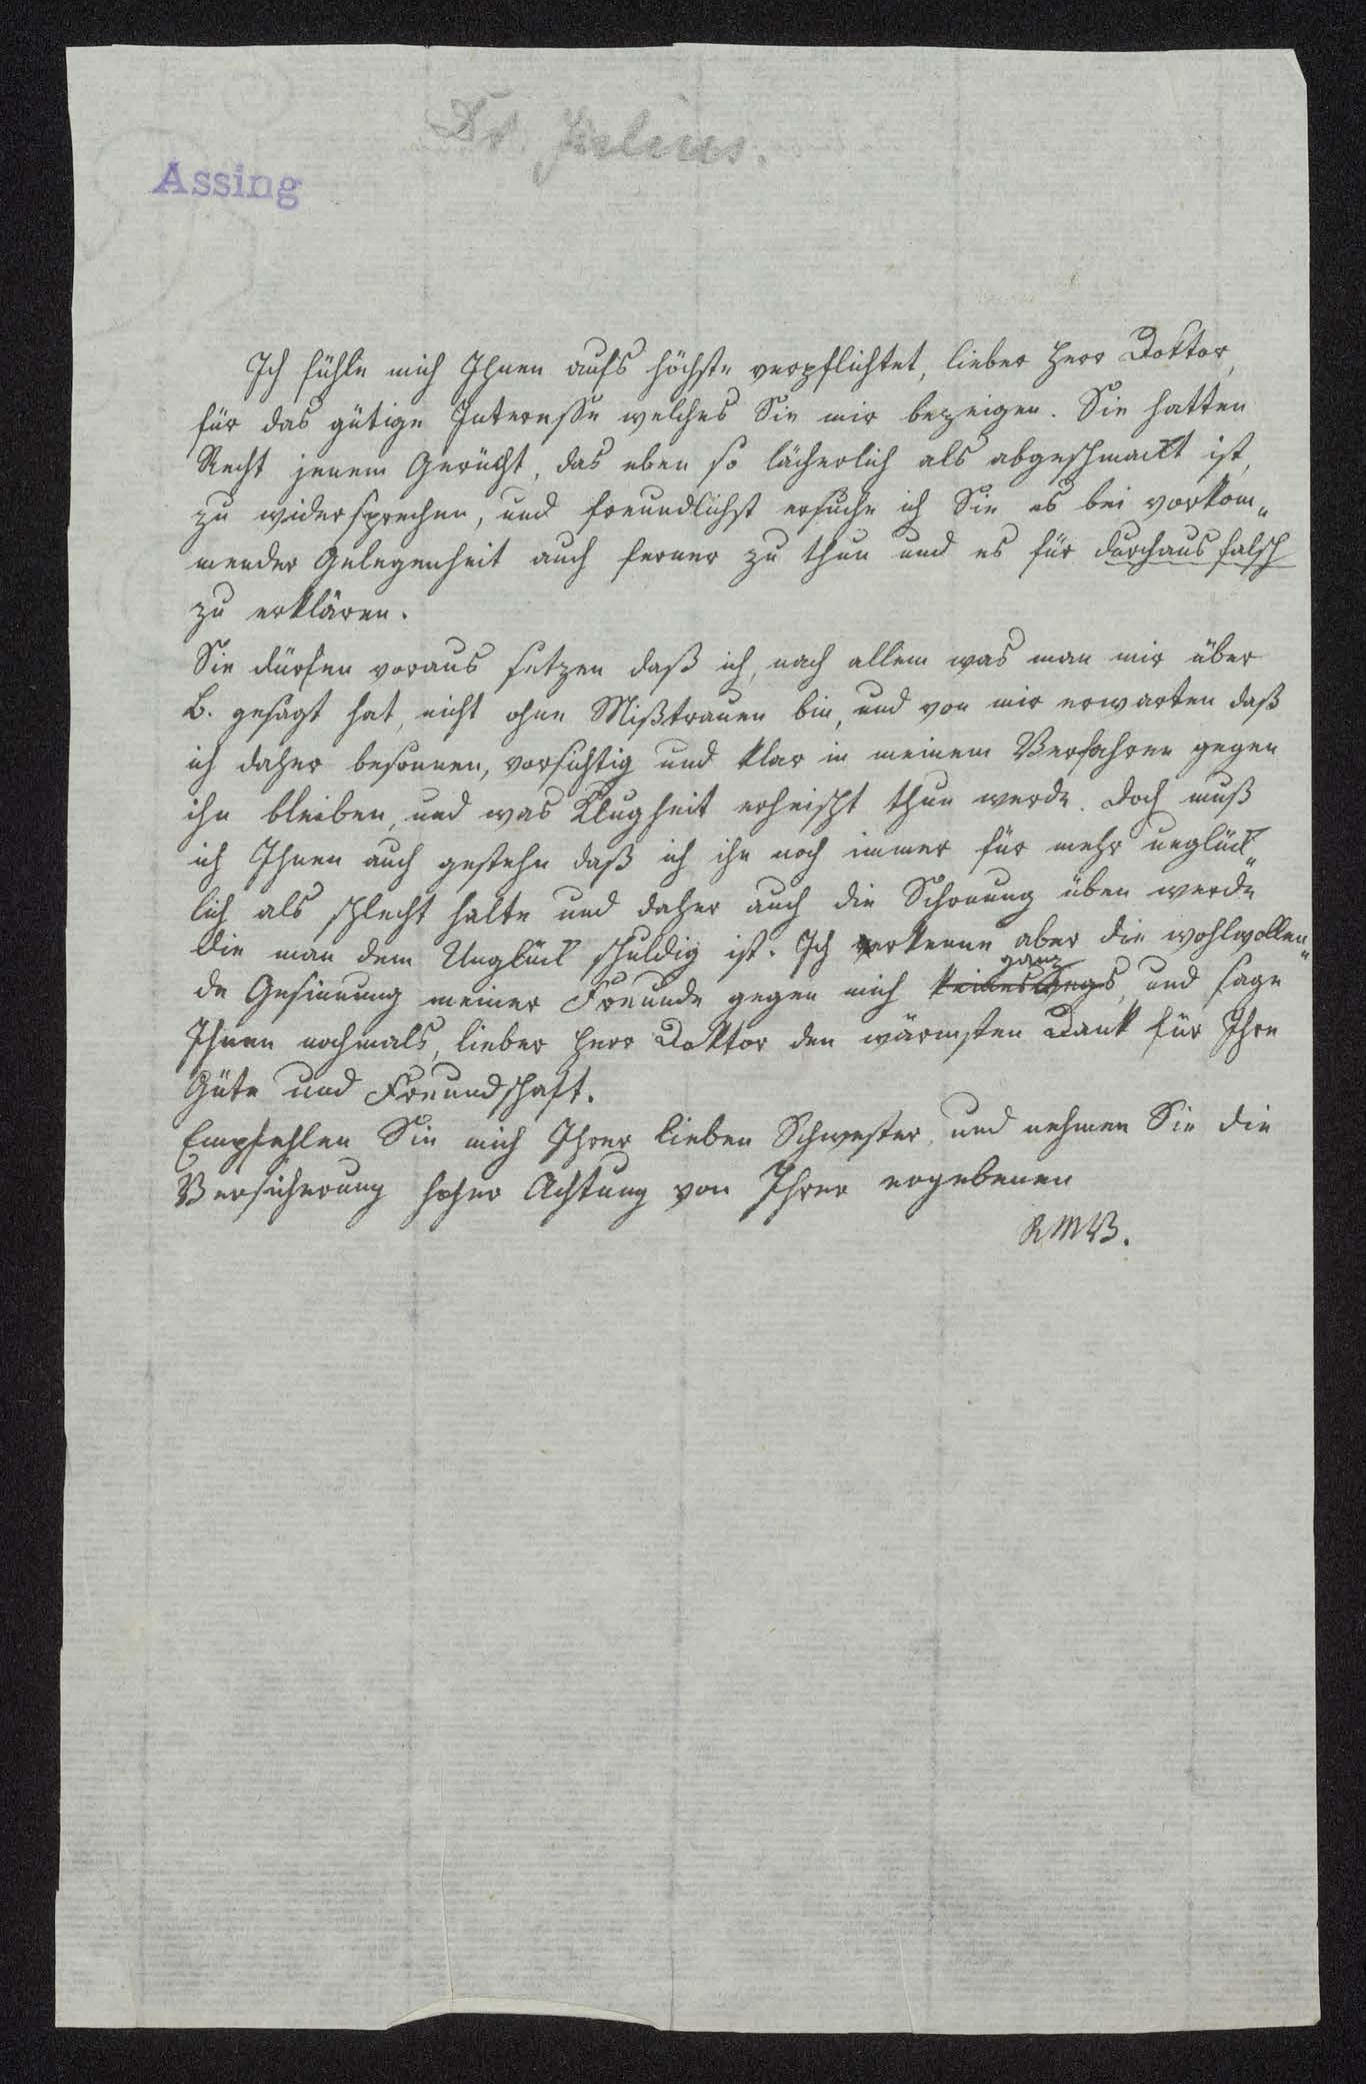 Dr. Julius.
Assing
Ich fühle mich Ihnen aufs höchste verpflichtet, lieber Herr Doktor,
für das gütige Interesse welches Sie mir bezeigen. Sie hatten
Recht jenem Gerücht, das eben so lächerlich als abgeschmackt ist,
zu widersprechen, und freundlichst ersuche ich Sie es bei vorkom„
mender Gelegenheit auch ferner zu thun und es für durchaus falsch
zu erklären.
Sie dürfen voraus setzen daß ich, nach allem was man mir über
B. gesagt hat, nicht ohne Mißtrauen bin, und von mir erwarten daß
ich daher besonnen, vorsichtig und klar in meinem Verfahren gegen
ihn bleiben, und was Klugheit erheischt thun werde. Doch muß
ich Ihnen auch gestehn daß ich ihn noch immer für mehr unglück„
lich als schlecht halte und daher auch die Schonung üben werde
die man dem Unglück schuldig ist. Ich erkenne aber die wohlwollen„
ganz
de Gesinnung meiner Freunde gegen mich keineswegs, und sage
Ihnen nochmals, lieber Herr Doktor den wärmsten Dank für Ihre
Güte und Freundschaft.
Empfehlen Sie mich Ihrer lieben Schwester, und nehmen Sie die
Versicherung hoher Achtung von Ihrer ergebenen
RMV.